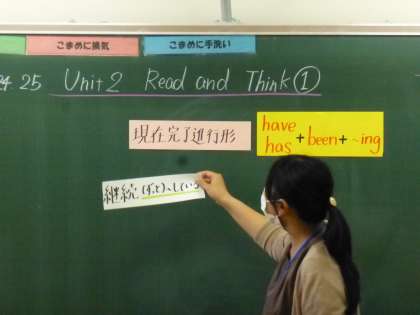 こまめに換気
こまめに手洗い
24.25 Unit 2 Read and Think ①
現在完了進行形
have
has
+ been + ~ing
継続 (ずっと)~している